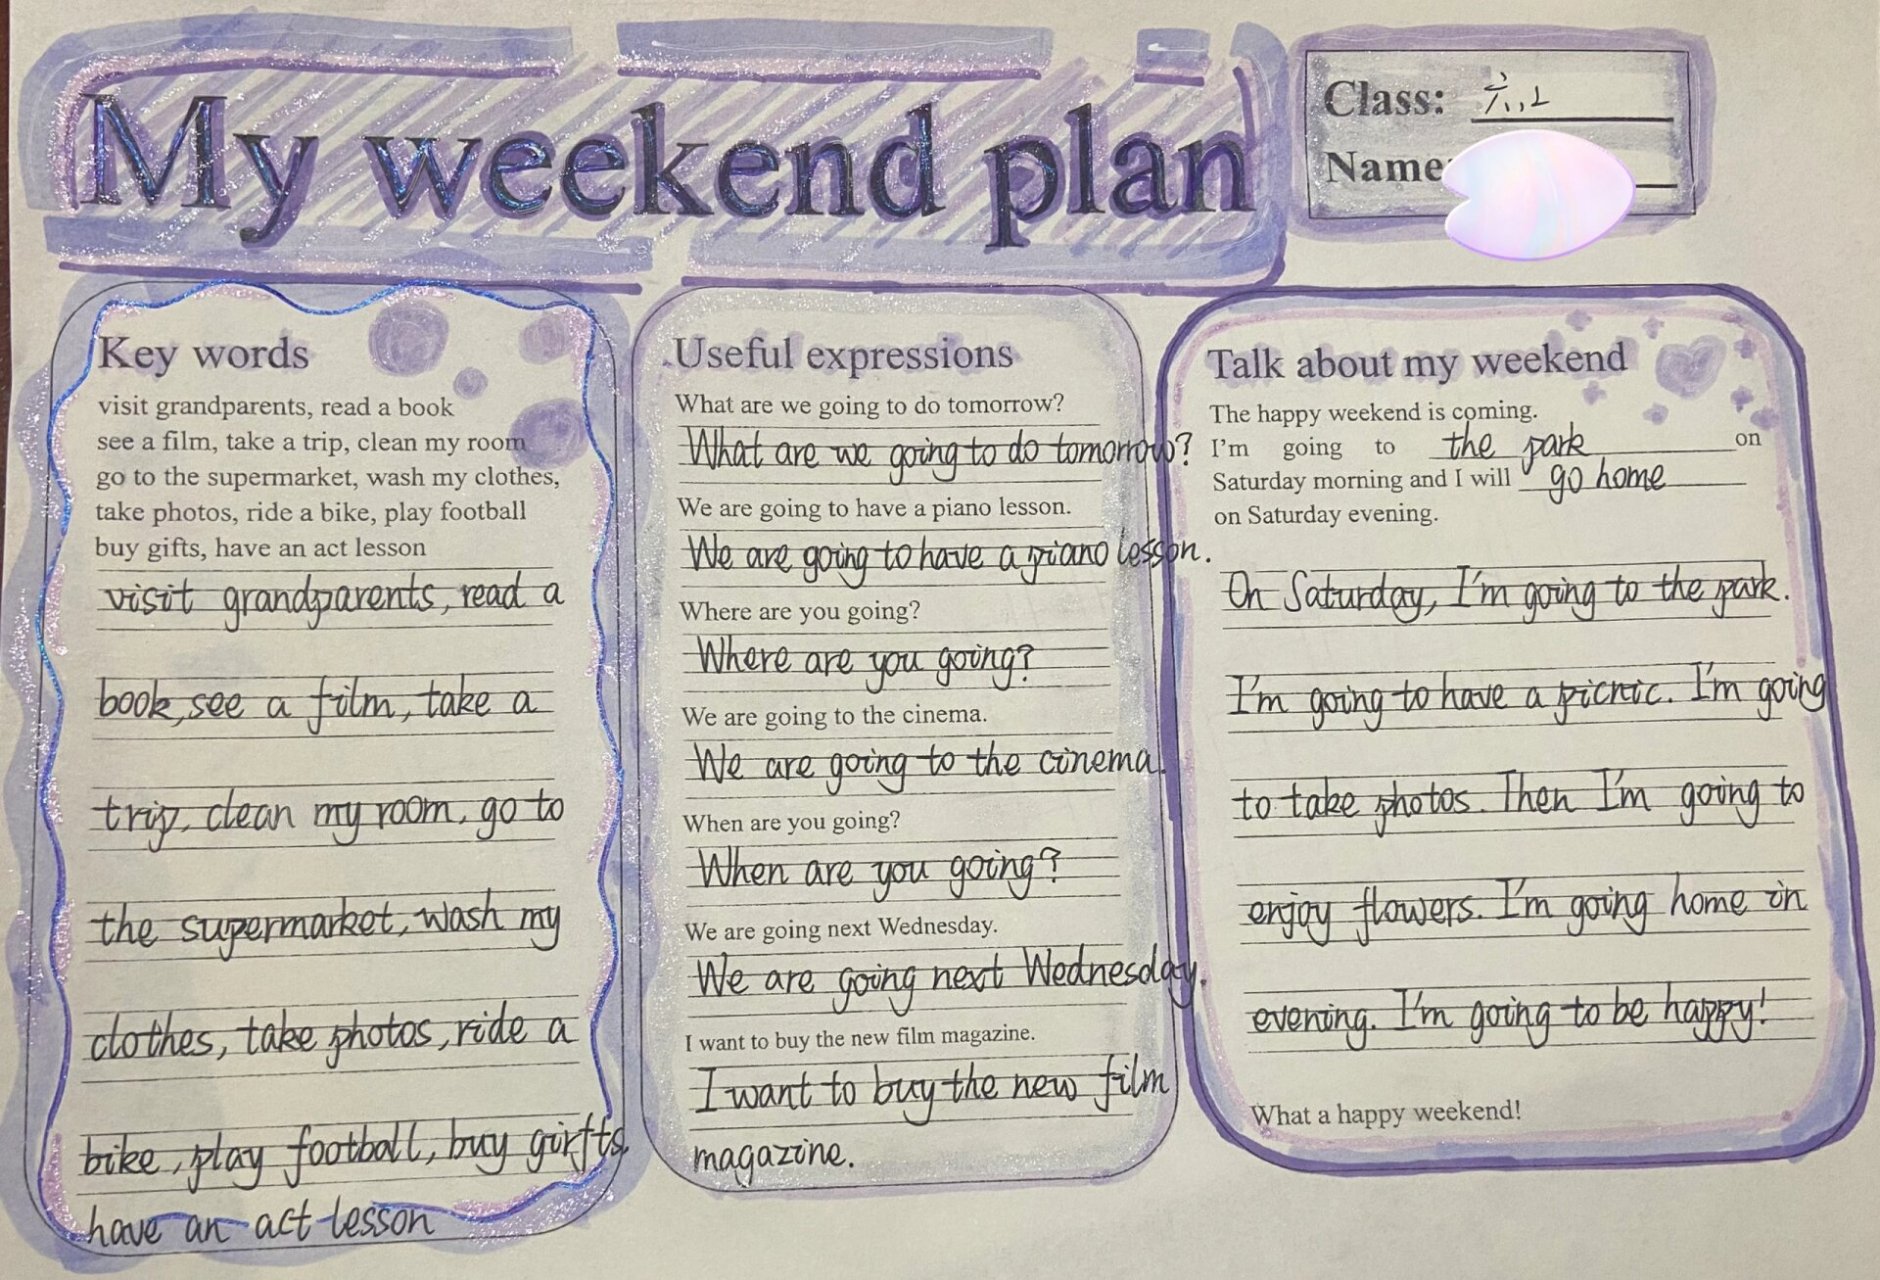 My weekend plan
Class: 六.1
Name:
Key words
visit grandparents, read a book
see a film, take a trip, clean my room
go to the supermarket, wash my clothes,
take photos, ride a bike, play football
buy gifts, have an act lesson
visit grandparents, read a
book, see a film, take a
trip, clean my room, go to
the supermarket, wash my
clothes, take photos, ride a
bike, play football, buy girfts,
have an act lesson
Useful expressions
What are we going to do tomorrow?
What are we going to do tomorrow?
We are going to have a piano lesson.
We are going to have a piano lesson.
Where are you going?
Where are you going?
We are going to the cinema.
We are going to the cinema.
When are you going?
When are you going?
We are going next Wednesday.
We are going next Wednesday.
I want to buy the new film magazine.
I want to buy the new film
magazine.
Talk about my weekend
The happy weekend is coming.
I'm going to the park on
Saturday morning and I will go home
on Saturday evening.
On Saturday, I'm going to the park.
I'm going to have a picnic. I'm going
to take photos. Then I'm going to
enjoy flowers. I'm going home in
evening. I'm going to be happy!
What a happy weekend!